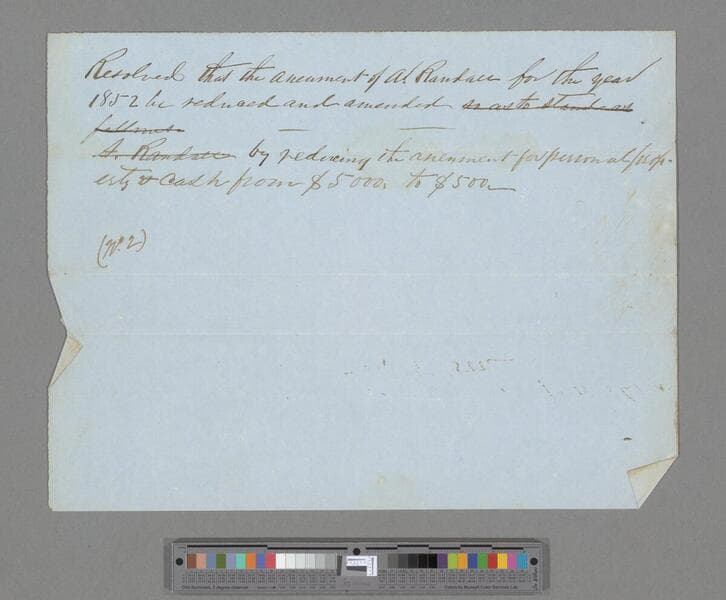 Resolved that the assessment of A. Randall for the year
1852 be reduced and amended so as to stand as
follows.
A. Randall by reducing the assessment for personal prop-
erty & Cash from $5000, to $500
(No. 2)